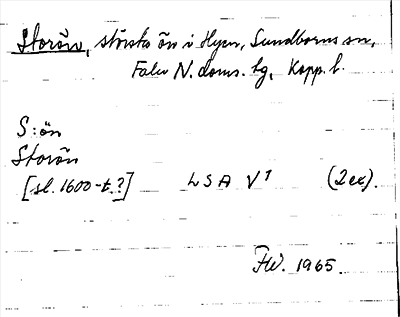 Storön, största ön i Hyen, Sundborns sn,
Falu N. doms. hg, Kopp. l.
S:ön
Storön
[sl. 1600-t.?] LSA V¹ (2 ex).
FW. 1965.